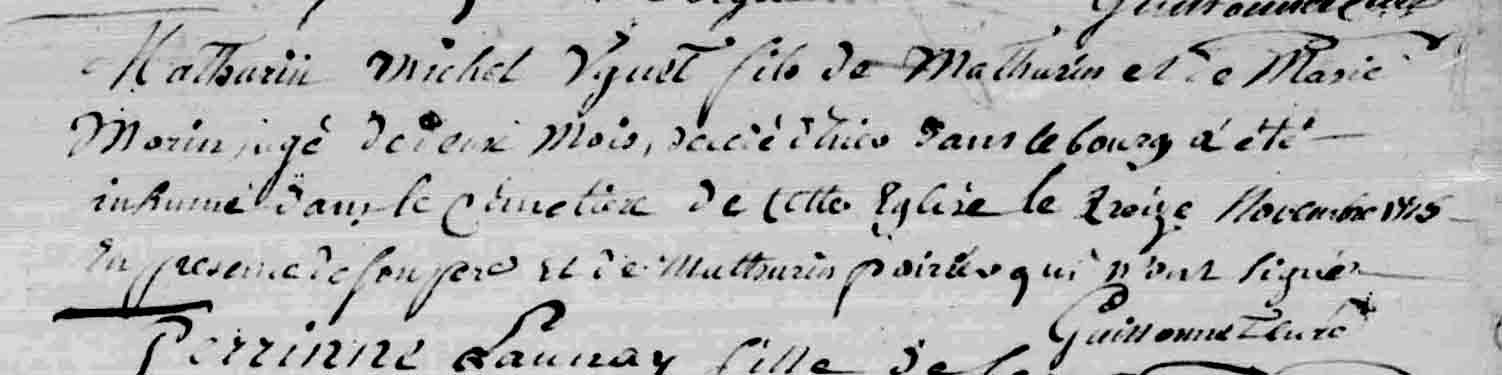 Guillonneteure
Mathurin Michel Vgust fils de Mathurin et de Marie
Morin, agé de deux mois, decédé hier dans le bourg a été
inhumé dans le Cimetiere de cette Eglise le treize Novembre
en presence de son pere et de Mathurin poirier qui n'ont signé
Perrinne Launay fille de